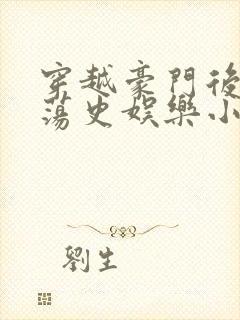 穿越豪門後
蕩史娛樂小
劉生